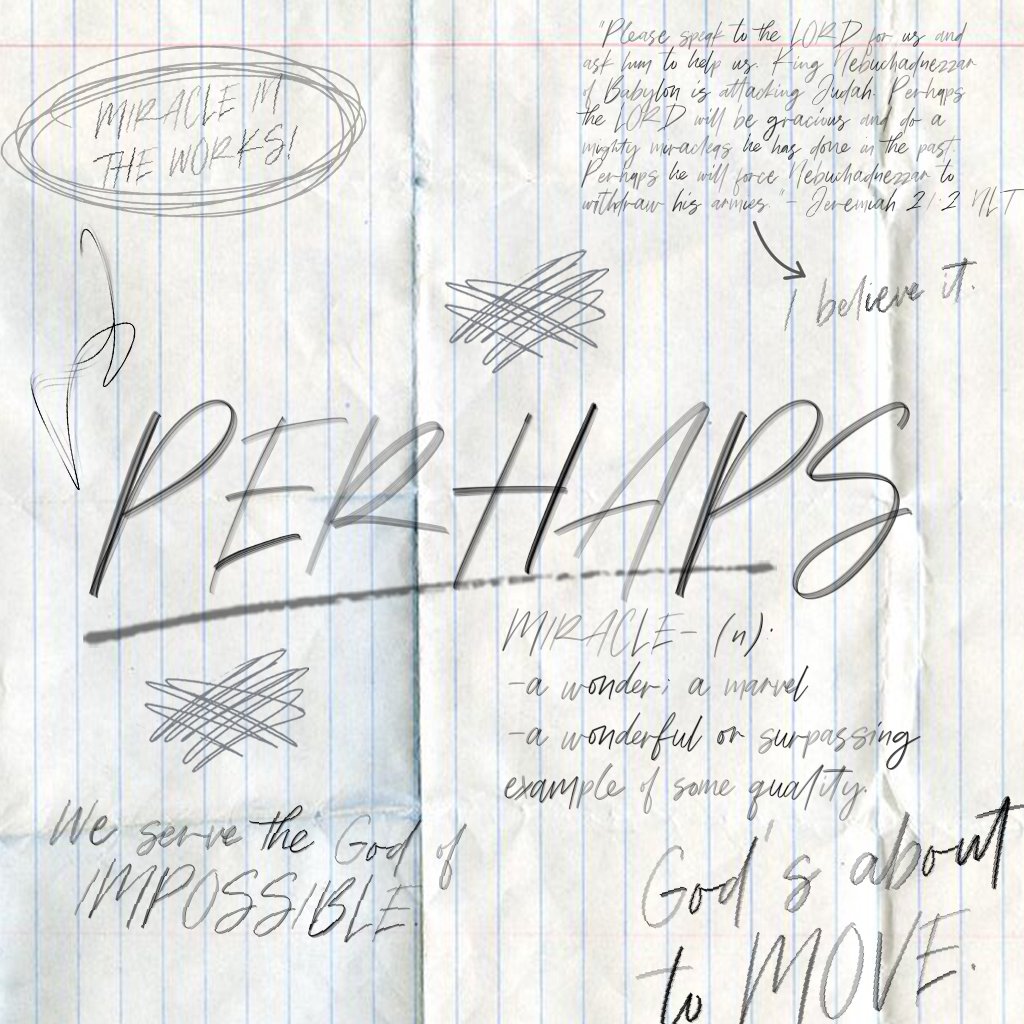 MIRACLE IN
THE WORKS!
"Please speak to the LORD for us and
ask him to help us. King Nebuchadnezzar
of Babylon is attacking Judah. Perhaps
the LORD will be gracious and do a
mighty miracleas he has done in the past.
Perhaps he will force Nebuchadnezzar to
withdraw his armies." - Jeremiah 21:2 NLT
I believe it.
PERHAPS
MIRACLE- (n):
-a wonder; a marvel
-a wonderful or surpassing
example of some quality.
We serve the God of
IMPOSSIBLE.
God's about
to MOVE.